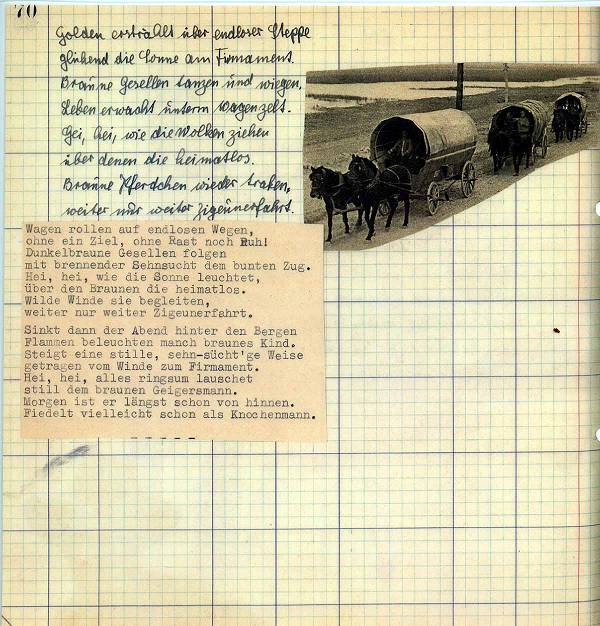 70
Golden erstrahlt über endloser Steppe
glühend die Sonne am Firmament.
Braune Gesellen tanzen und wiegen,
Leben erwacht unterm Wagenzelt.
Hei, hei, wie die Wolken ziehen
über denen die heimatlos.
Braune Pferdchen wieder traben,
weiter nur weiter Zigeunerfahrt.
Wagen rollen auf endlosen Wegen,
ohne ein Ziel, ohne Rast noch Ruh!
Dunkelbraune Gesellen folgen
mit brennender Sehnsucht dem bunten Zug.
Hei, hei, wie die Sonne leuchtet,
über den Braunen die heimatlos.
Wilde Winde sie begleiten,
weiter nur weiter Zigeunerfahrt.
Sinkt dann der Abend hinter den Bergen
Flammen beleuchten manch braunes Kind.
Steigt eine stille, sehn-sücht'ge Weise
getragen vom Winde zum Firmament.
Hei, hei, alles ringsum lauschet
still dem braunen Geigersmann.
Morgen ist er längst schon von hinnen.
Fiedelt vielleicht schon als Knochenmann.